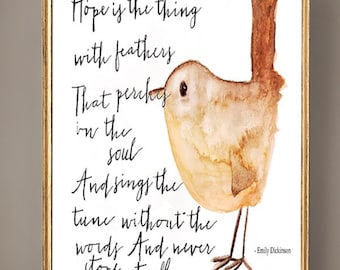 Hope is the thing
with feathers
That perches
in the
soul
And sings the
tune without the
words And never
stops at all
- Emily Dickinson